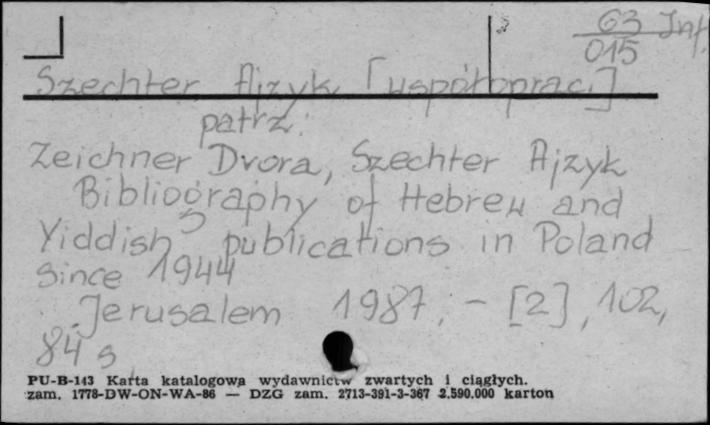 63 Inf.
015
Szechter Ajzyk [współoprac.]
patrz:
Zeichner Dvora, Szechter Ajzyk
Bibliography of Hebrew and
Yiddish publications in Poland
since 1944
Jerusalem 1987, - [2], 102,
84 s
PU-B-143 Karta katalogowa wydawnictw zwartych i ciągłych.
zam. 1778-DW-ON-WA-86 — DZG zam. 2713-391-3-367 2.590.000 karton